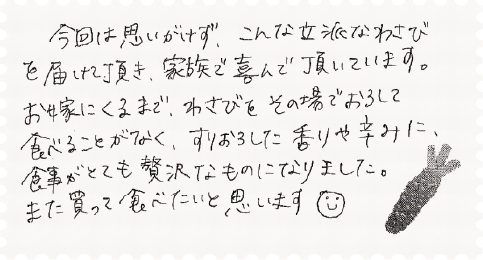 今回は思いがけず、こんな立派なわさび
を届けて頂き、家族で喜んで頂いています。
お嫁にくるまで、わさびをその場でおろして
食べることがなく、すりおろした香りや辛みに、
食事がとても贅沢なものになりました。
また買って食べたいと思います